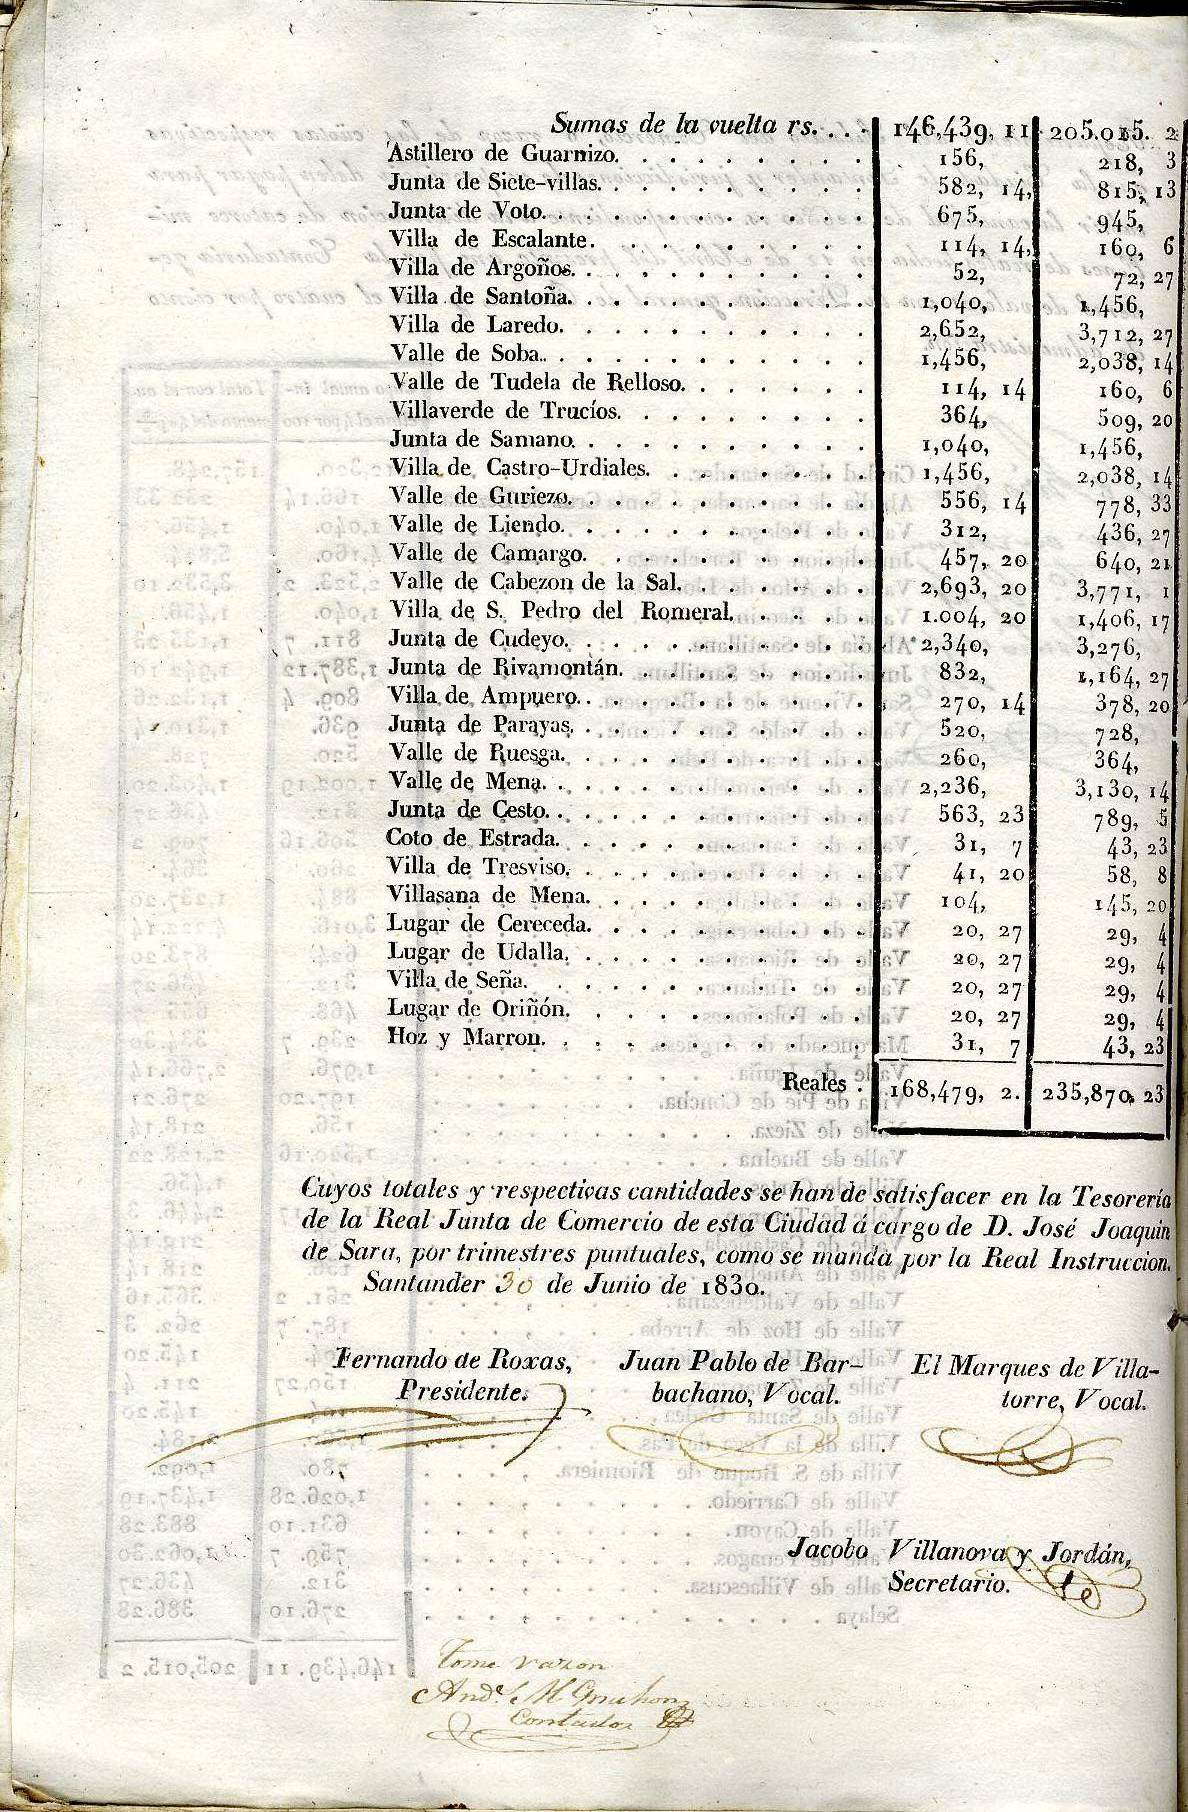 Sumas de la vuelta rs. . . . 146,439, 11 205.015. 2
Astillero de Guarnizo. . . . . . . . . 156, 218, 3
Junta de Siete-villas. . . . . . . . . . 582, 14, 815, 13
Junta de Voto. . . . . . . . . . . . 675, 945,
Villa de Escalante. . . . . . . . . . 114, 14, 160, 6
Villa de Argoños. . . . . . . . . . . 52, 72, 27
Villa de Santoña. . . . . . . . . . . 1,040, 1,456,
Villa de Laredo. . . . . . . . . . . 2,652, 3,712, 27
Valle de Soba.. . . . . . . . . . . . 1,456, 2,038, 14
Valle de Tudela de Relloso. . . . . . . 114, 14 160, 6
Villaverde de Trucíos. . . . . . . . . 364, 509, 20
Junta de Samano. . . . . . . . . . . 1,040, 1,456,
Villa de Castro-Urdiales. . . . . . . . 1,456, 2,038, 14
Valle de Guriezo. . . . . . . . . . . 556, 14 778, 33
Valle de Liendo. . . . . . . . . . . 312, 436, 27
Valle de Camargo. . . . . . . . . . 457, 20 640, 21
Valle de Cabezon de la Sal. . . . . . . 2,693, 20 3,771, 1
Villa de S. Pedro del Romeral. . . . . 1.004, 20 1,406, 17
Junta de Cudeyo. . . . . . . . . . . 2,340, 3,276,
Junta de Rivamontán. . . . . . . . . 832, 1,164, 27
Villa de Ampuero.. . . . . . . . . . . 270, 14 378, 20
Junta de Parayas. . . . . . . . . . . 520, 728,
Valle de Ruesga. . . . . . . . . . . 260, 364,
Valle de Mena. . . . . . . . . . . . 2,236, 3,130, 14
Junta de Cesto. . . . . . . . . . . . 563, 23 789, 5
Coto de Estrada. . . . . . . . . . . 31, 7 43, 23
Villa de Tresviso. . . . . . . . . . . 41, 20 58, 8
Villasana de Mena. . . . . . . . . . 104, 145, 20
Lugar de Cereceda. . . . . . . . . . 20, 27 29, 4
Lugar de Udalla. . . . . . . . . . . 20, 27 29, 4
Villa de Seña. . . . . . . . . . . . 20, 27 29, 4
Lugar de Oriñón. . . . . . . . . . . 20, 27 29, 4
Hoz y Marron. . . . . . . . . . . . 31, 7 43, 23
Reales . 168,479, 2. 235,870, 23
Cuyos totales y respectivas cantidades se han de satisfacer en la Tesorería
de la Real Junta de Comercio de esta Ciudad á cargo de D. José Joaquin
de Sara, por trimestres puntuales, como se manda por la Real Instruccion.
Santander 30 de Junio de 1830.
Fernando de Roxas, Juan Pablo de Bar- El Marques de Villa-
Presidente. bachano, Vocal. torre, Vocal.
Jacobo Villanova y Jordán,
Secretario.
Tome razon
Contador